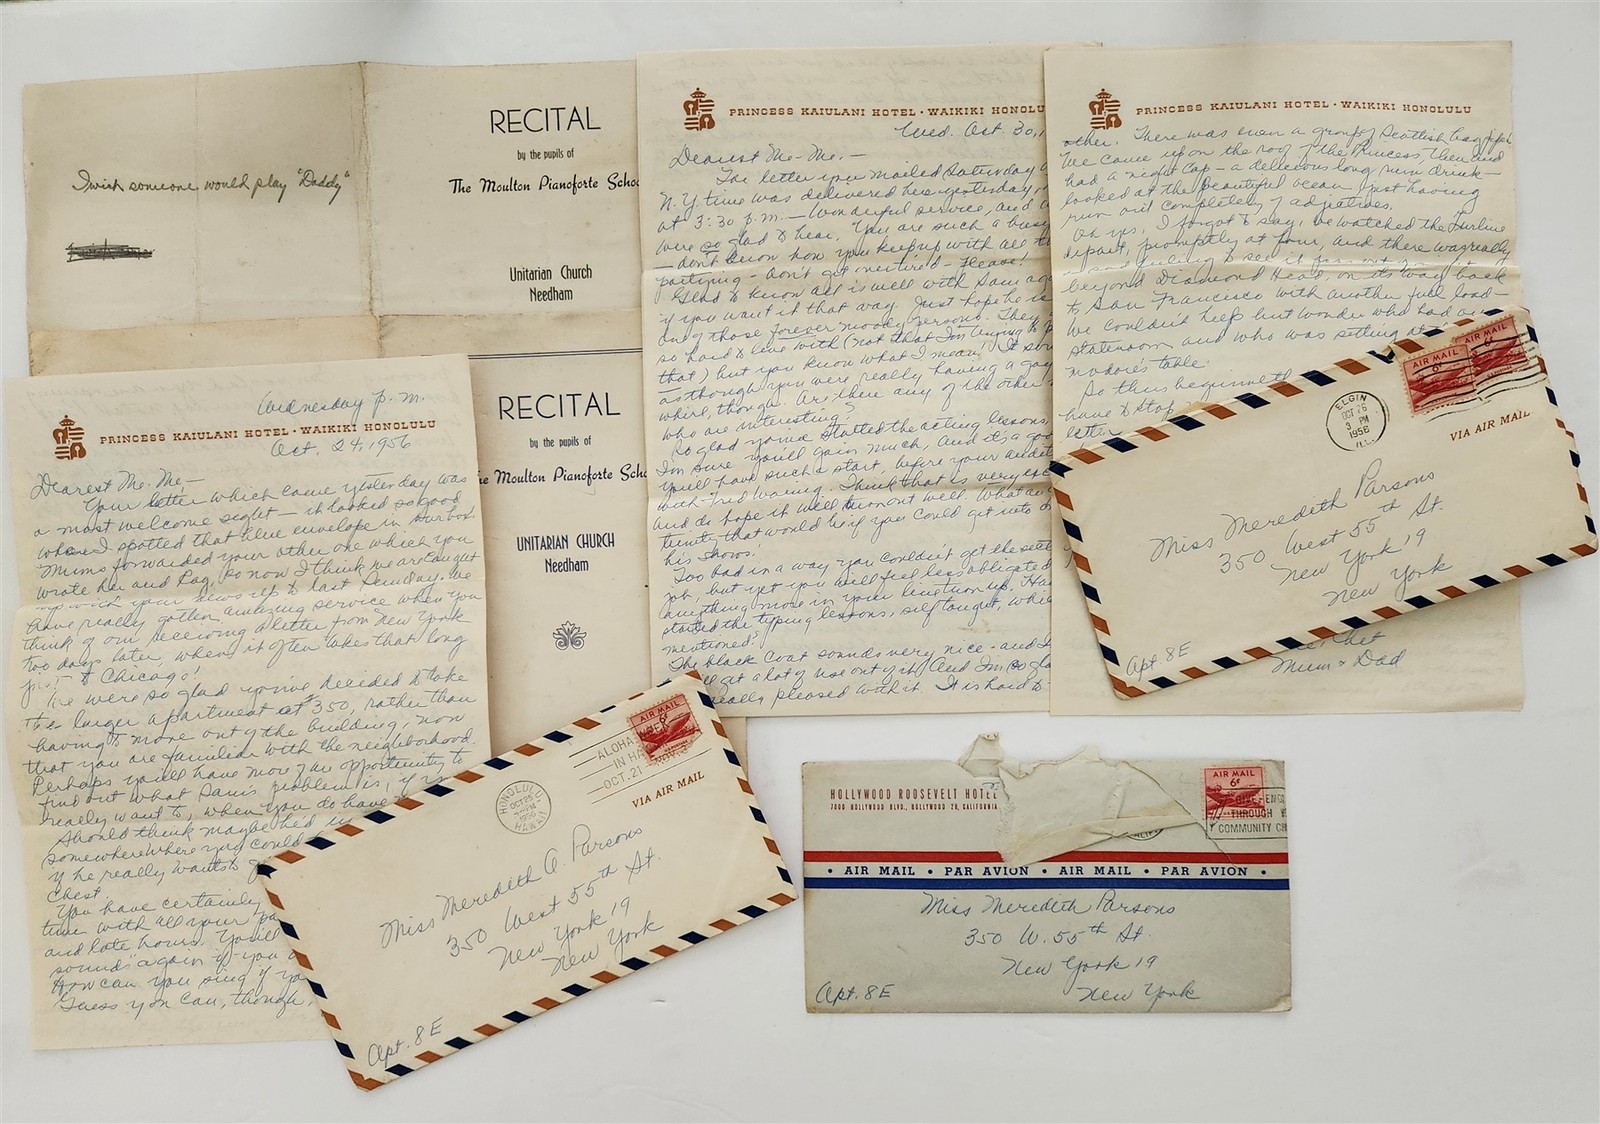 I wish someone would play "Daddy"
RECITAL
by the pupils of
The Moulton Pianoforte Schoo
Unitarian Church
Needham
RECITAL
by the pupils of
he Moulton Pianoforte Scho
UNITARIAN CHURCH
Needham
Wednesday p.m.
PRINCESS KAIULANI HOTEL · WAIKIKI HONOLULU
Oct. 24, 1956
Dearest Me-Me-
Your letter which came yesterday was
a most welcome sight - it looked so good
when I spotted that blue envelope in our box.
Mums forwarded your other one which you
wrote her and Pag, so now I think we are caught
up with your news up to last Sunday. We
have really gotten amazing service when you
think of our receiving a letter from New York
two days later, when it often takes that long
just to Chicago!
We were so glad you've decided to take
the larger apartment at 350, rather than
having to move out of the building, now
that you are familiar with the neighborhood.
Perhaps you'll have more of an opportunity to
find out what Sam's problem is, if
really want to, when you do have
Should think maybe he'd
somewhere where you could
if he really wants to
chest.
You have certainly
time with all your pa
and late hours. You'll
sounds" again if you
How can you sing if yo
Guess you can, though,
PRINCESS KAIULANI HOTEL · WAIKIKI HONOLU
Wed. Oct. 30, 1
Dearest Me-Me-
The letter you mailed Saturday
N.Y. time was delivered here yesterday,
at 3:30 p.m. - wonderful service, and
were so glad to hear. You are such a busy
- don't know how you keep up with all th
partying - don't get overtired - Please!
Glad to know all is well with Sam aga
if you want it that way. Just hope he is
one of those forever moody persons. They
so hard to live with (not that I'm trying to
that) but you know what I mean! It
as though you were really having a gay
whirl, though. Are there any of the other
who are interesting?
So glad you've started the acting lessons,
I'm sure you'll gain much, and it's a goo
you'll have such a start, before your audit
with Fred Waring. Think that is very
and do hope it will turn out well. What an
tunity that would be if you could get into
his shows.
Too bad in a way you couldn't get the
job, but yet you will feel less obligated
anything more in your line turn up. Ha
started the typing lessons, self taught, which
mentioned?
The black coat sounds very nice - and
get a lot of use out of it. And I'm so gla
really pleased with it. It is hard to
PRINCESS KAIULANI HOTEL · WAIKIKI HONOLULU
other. There was even a group of Scottish bag
We came up on the roof of the Princess, then and
had a night cap - a delicious long rum drink -
looked at the beautiful ocean, just having
run out completely of adjectives.
Oh yes, I forgot to say, we watched the Lurline
depart, promptly at four, and there was really
a sad feeling to see it pass out
beyond Diamond Head, on its way back
to San Francisco with another full load -
We couldn't help but wonder who had our
stateroom and who was sitting at
modore's table.
So thus beginneth
have to stop
letter
Mum & Dad
HONOLULU
OCT 25
1956
HAWAII
ALOHA
IN HA
OCT. 21
AIR MAIL
6¢
VIA AIR MAIL
Miss Meredith A. Parsons
350 West 55th St.
New York 19
New York
Apt. 8E
ELGIN
OCT 26
3 PM
1956
ILL.
AIR MAIL
6¢
AIR MAIL
6¢
VIA AIR MAIL
Miss Meredith Parsons
350 West 55th St.
New York 19
New York
Apt 8E
HOLLYWOOD ROOSEVELT HOTEL
7000 HOLLYWOOD BLVD., HOLLYWOOD 28, CALIFORNIA
AIR MAIL
6¢
THROUGH
COMMUNITY CH
· AIR MAIL · PAR AVION · AIR MAIL · PAR AVION ·
Miss Meredith Parsons
350 W. 55th St.
New York 19
New York
Apt. 8E